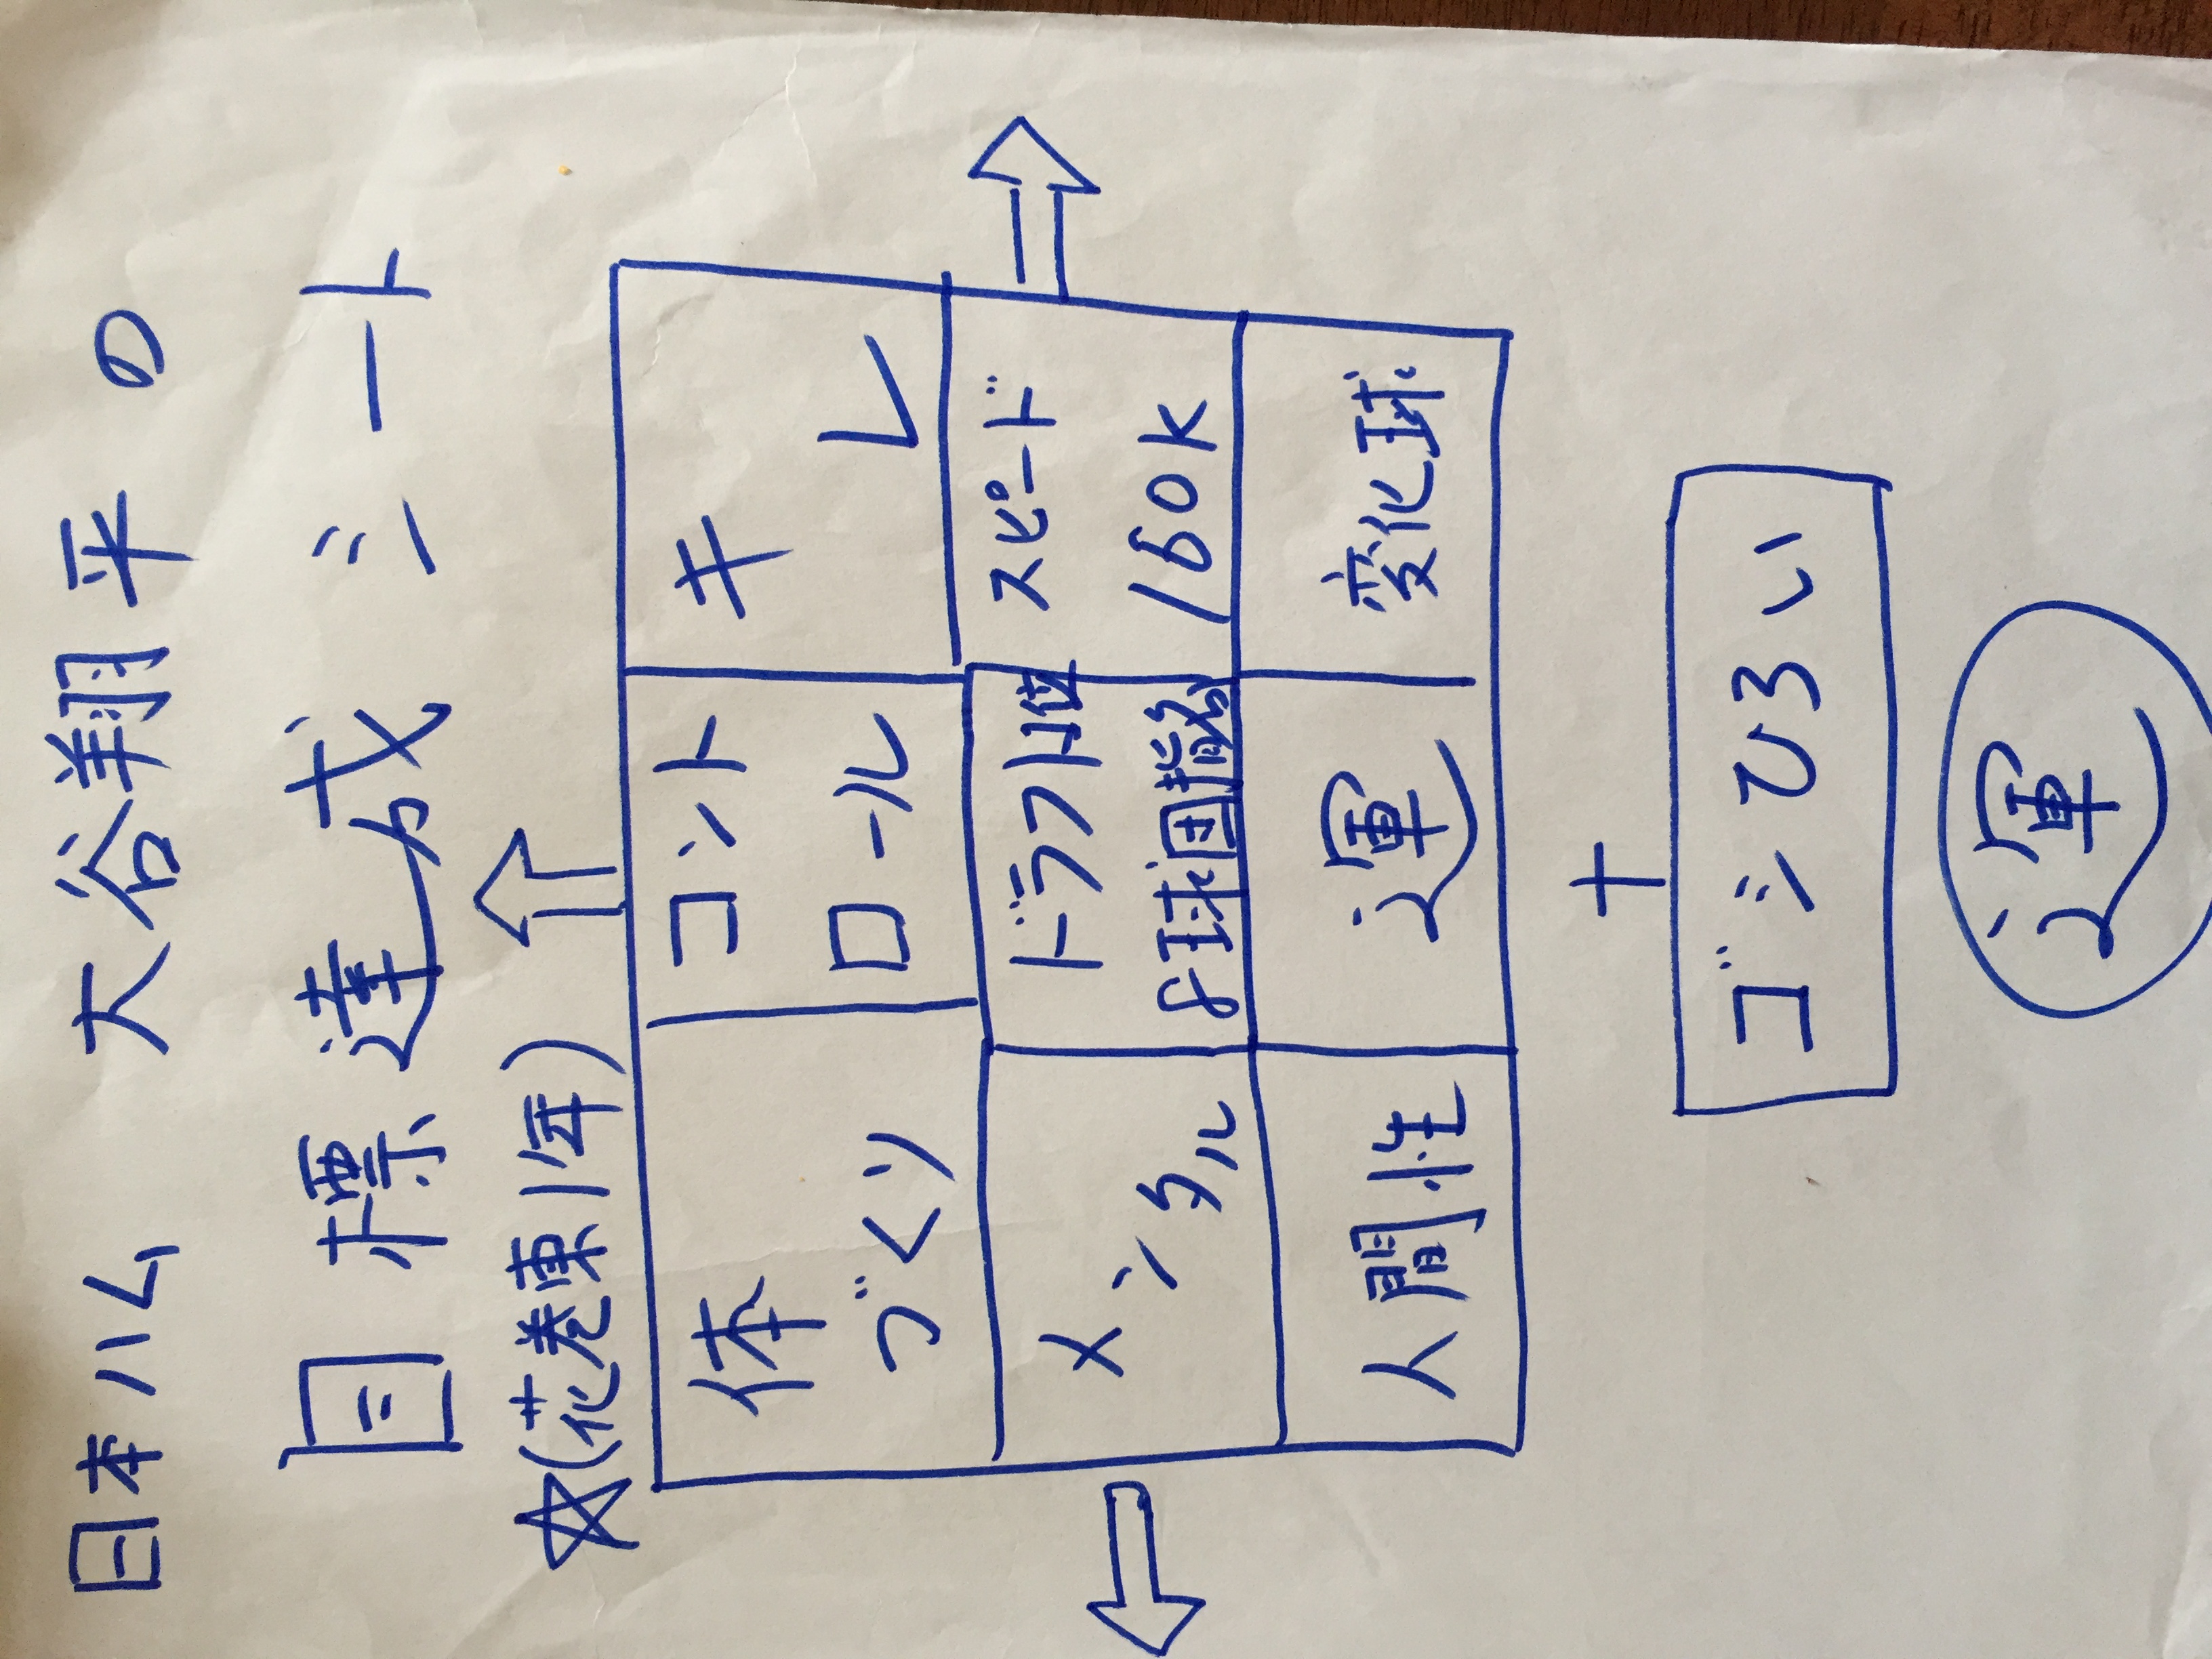 日本ハム 大谷翔平の
目標達成シート
☆(花巻東1年)
体づくり
コントロール
キレ
メンタル
ドラフト1位
8球団指名
スピード
160K
人間性
運
変化球
+
ゴミひろい
運